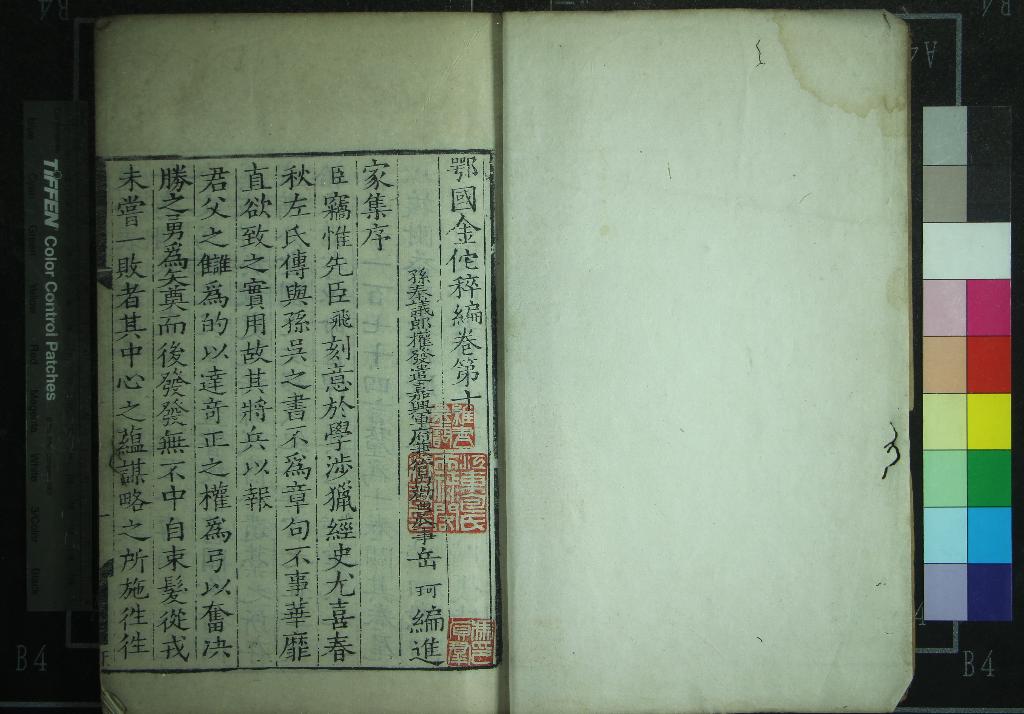 鄂國金佗稡編卷第十
孫奉議郎權發遣嘉興軍府兼 事岳 珂 編進
家集序
臣竊惟先臣飛刻意於學涉獵經史尤喜春
秋左氏傳與孫吳之書不爲章句不事華靡
直欲致之實用故其將兵以報
君父之讎爲的以達奇正之權爲弓以奮決
勝之勇爲矢奠而後發發無不中自束髮從戎
未嘗一敗者其中心之蘊謀略之所施徃徃
TIFFEN Color Control Patches
B4
B4
A4